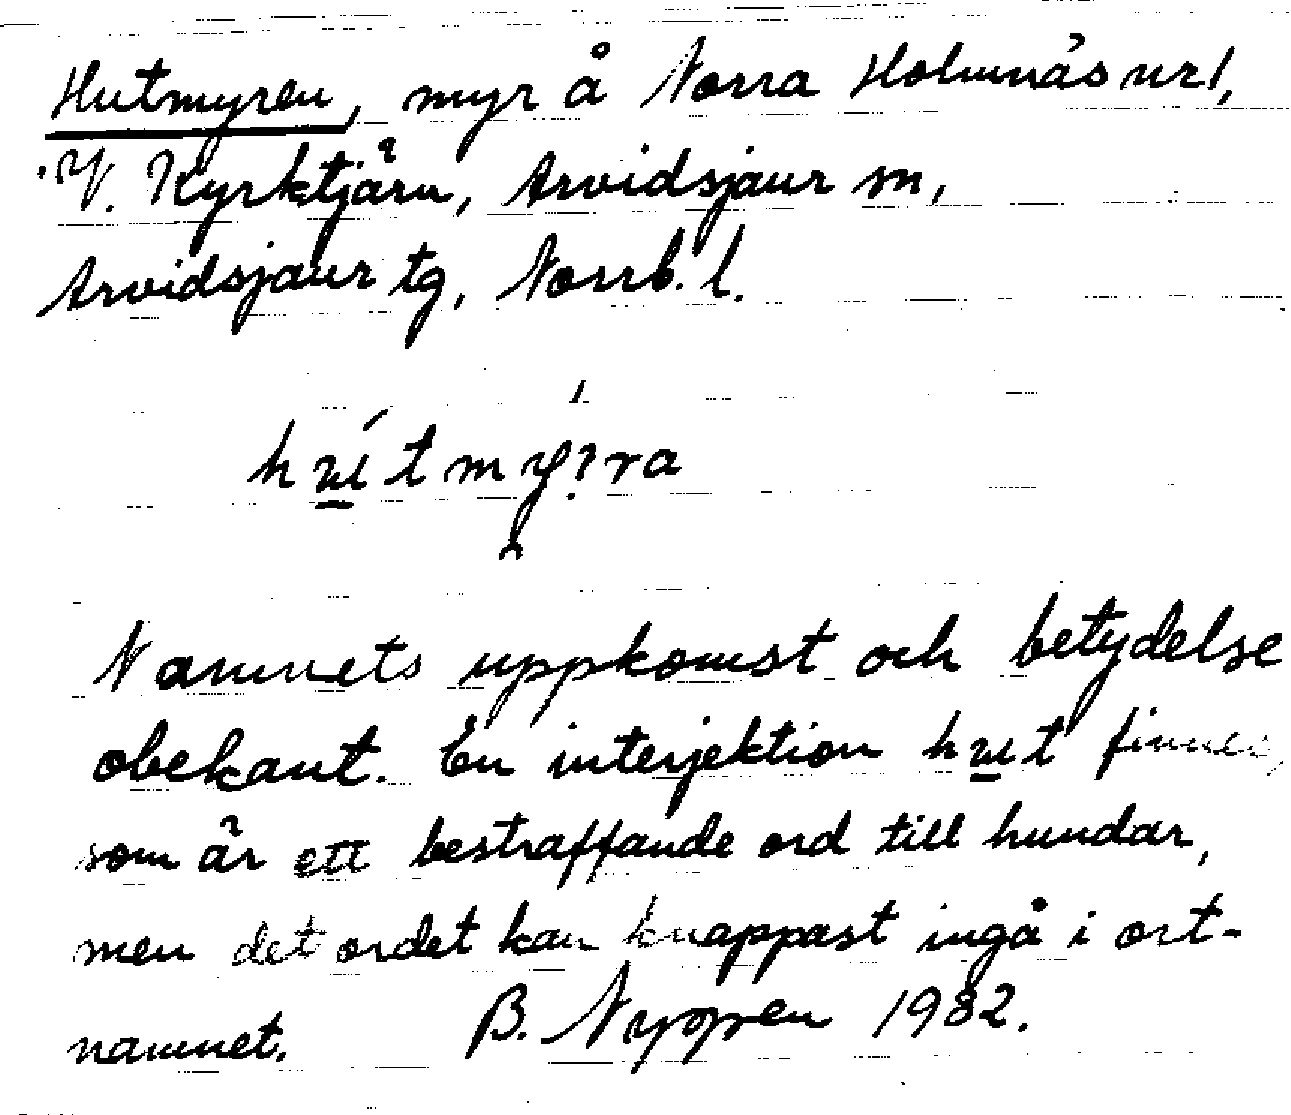 Hutmyren, myr å Norra Holmnäs url,
V. Kyrktjärn, Arvidsjaur sn,
Arvidsjaur tg, Norrb. l.
Namnets uppkomst och betydelse
obekant. En interjektion hut finnes,
som är ett bestraffande ord till hundar,
men det ordet kan knappast ingå i ort-
namnet. B. Nygren 1982.